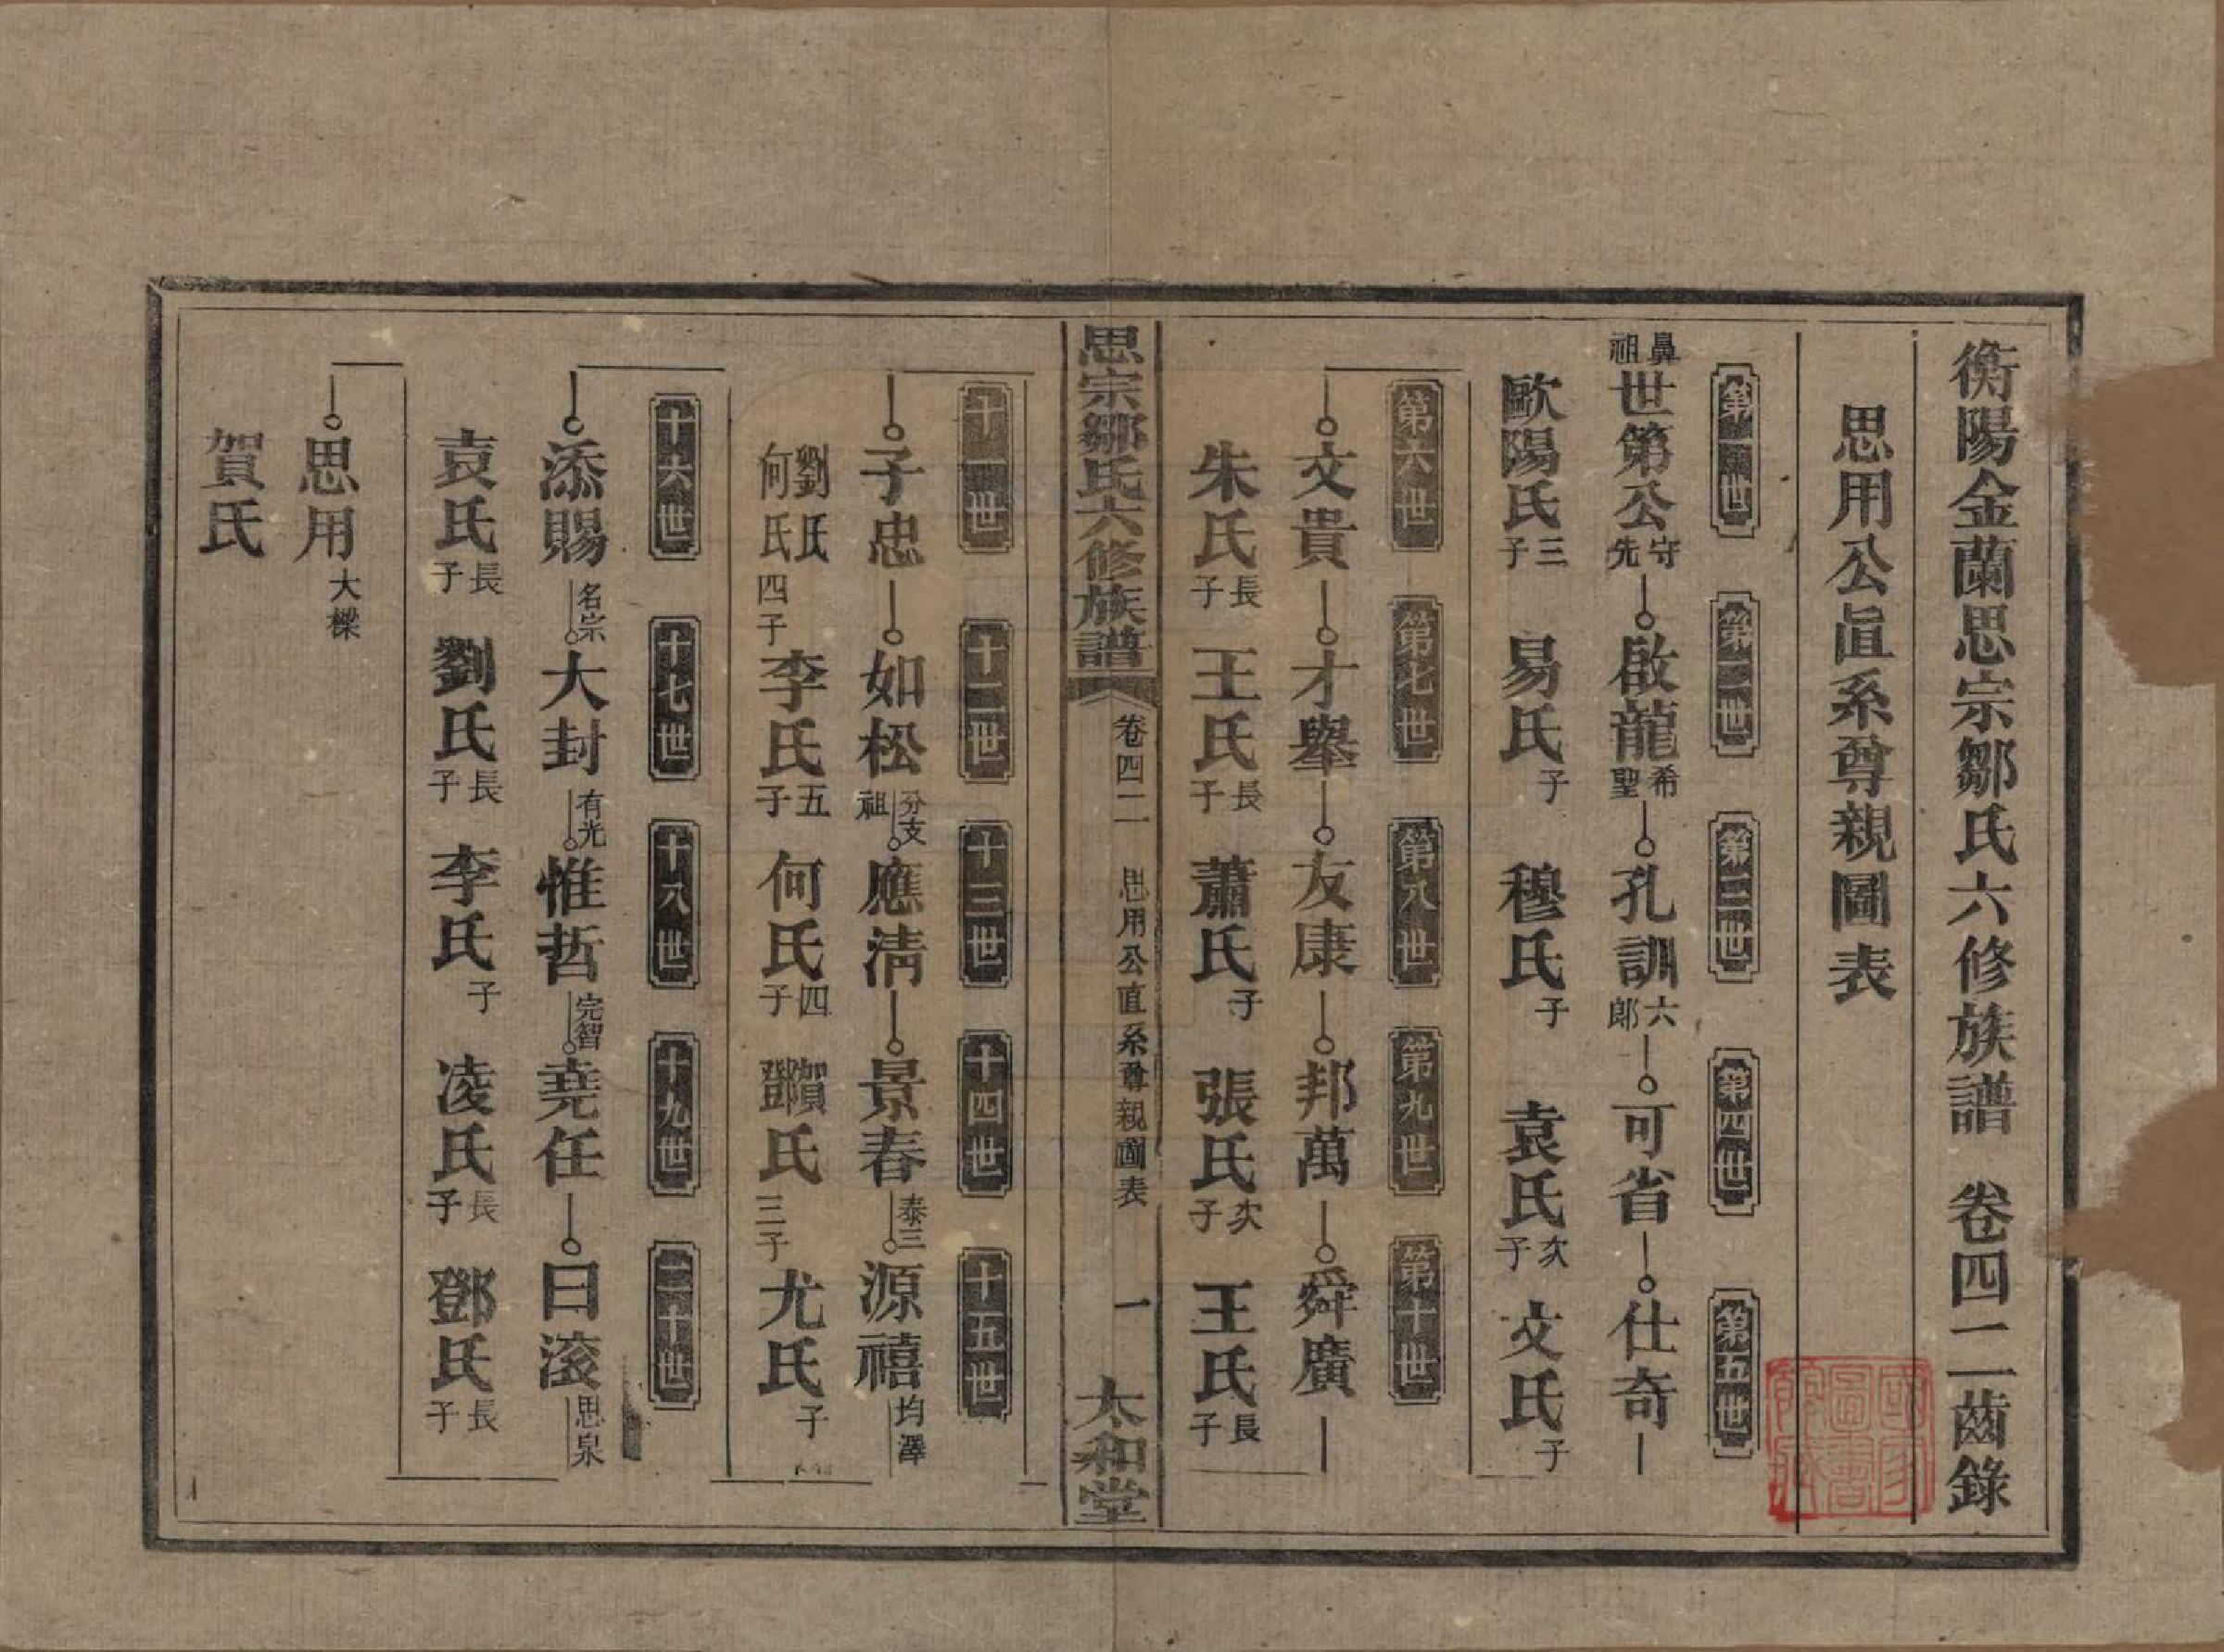 衡陽金蘭思宗鄒氏六修族譜 卷四二齒錄
思用公直系尊親圖表
第一世 第二世 第三世 第四世 第五世
鼻祖 世第公 守先 啟龍 希聖 孔訓 六郎 可省 仕奇
歐陽氏 三子 易氏 子 穆氏 子 袁氏 次子 文氏 子
第六世 第七世 第八世 第九世 第十世
文貴 才舉 友康 邦萬 舜廣
朱氏 長子 王氏 長子 蕭氏 子 張氏 次子 王氏 長子
思宗鄒氏六修族譜 卷四二 思用公直系尊親圖表 一 太和堂
十一世 十二世 十三世 十四世 十五世
子忠 如松 分支祖 應清 景春 泰三 源禧 均澤
劉氏 何氏 四子 李氏 五子 何氏 四子 賀鄧氏 三子 尤氏 子
十六世 十七世 十八世 十九世 二十世
添賜 名宗 大封 有光 惟哲 完智 堯任 曰滚 思泉
袁氏 長子 劉氏 長子 李氏 子 凌氏 長子 鄧氏 長子
思用 大樑
賀氏